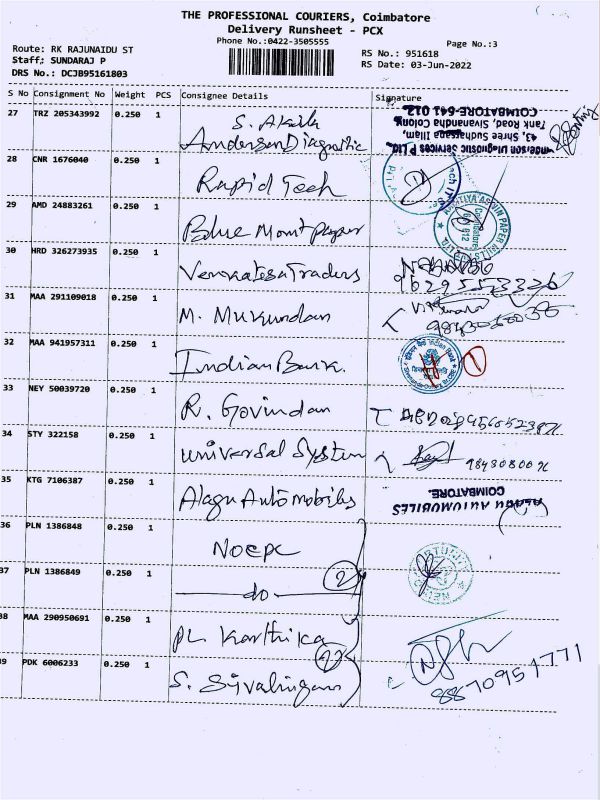 THE PROFESSIONAL COURIERS, Coimbatore
Delivery Runsheet - PCX
Phone No.:0422-3505555
Page No.:3
Route: RK RAJUNAIDU ST
RS No.: 951618
Staff: SUNDARAJ P
RS Date: 03-Jun-2022
DRS No.: DCJB95161803
S No Consignment No Weight PCS Consignee Details Signature
27 TRZ 205343992 0.250 1 S. Akilk
Anderson Diagnostic
Anderson Diagnostic Services P Ltd.,
43, Shree Sudharsana Illam,
Tank Road, Sivanandha Colony
COIMBATORE-641 012
28 CNR 1676040 0.250 1 Rapid Tech
29 AMD 24883261 0.250 1 Blue Mount paper
30 HRD 326273935 0.250 1 Venkatesa Traders
9629553326
31 MAA 291109018 0.250 1 M. Mukundan
32 MAA 941957311 0.250 1 Indian Bank.
1
33 NEY 50039720 0.250 1 R. Govindan
34 STY 322158 0.250 1 universal System
35 KTG 7106387 0.250 1 Alagu Automobiles
ALAGU AUTOMOBILES
COIMBATORE.
36 PLN 1386848 0.250 1 NOEPC
37 PLN 1386849 0.250 1 do
2
38 MAA 290950691 0.250 1 PL Karthika
39 PDK 6006233 0.250 1 S. Sivalingam
8870951771